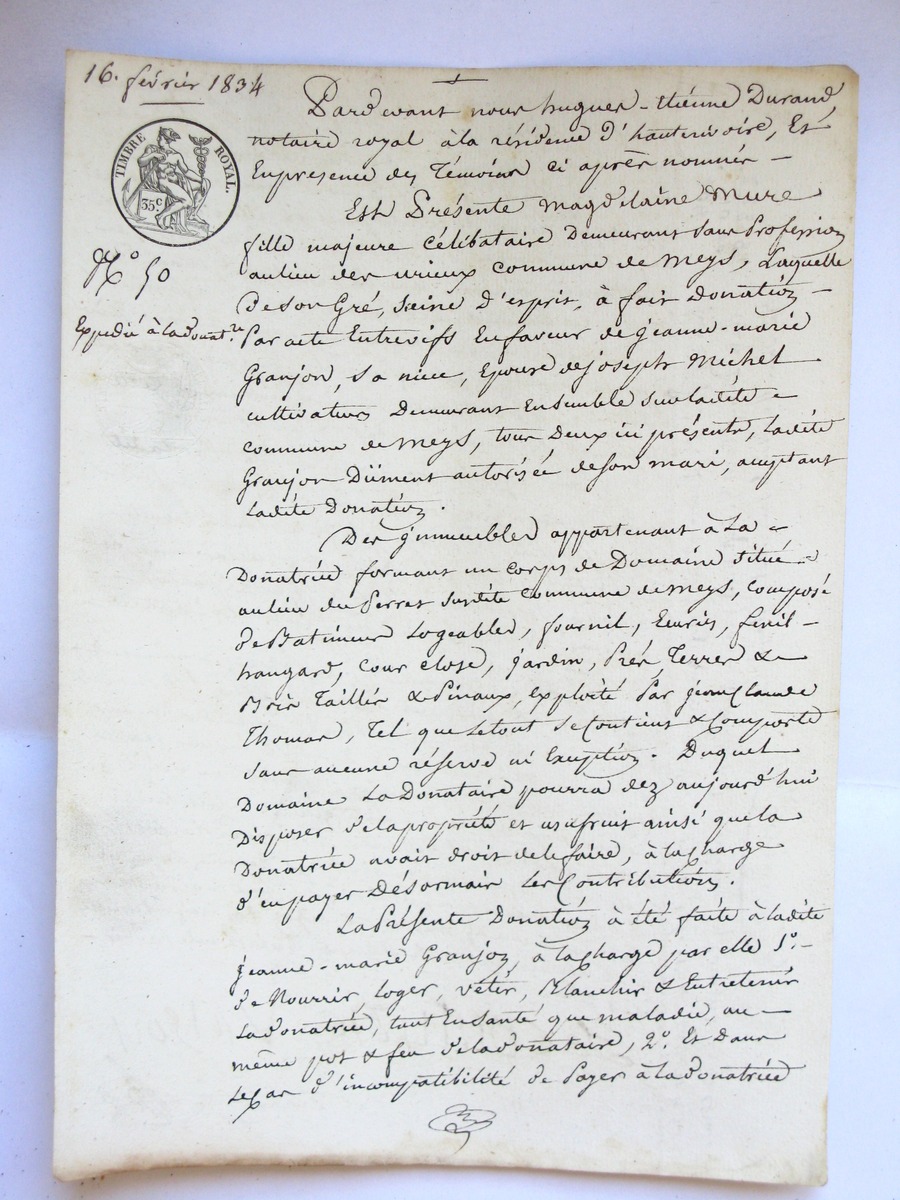 16. février 1834
TIMBRE ROYAL.
35c
No 50
Expedié à la donatre
Pardevant nous hugues-Etiénne Durand,
notaire royal à la résidence d'hauterivoire, Et
En presence des Témoins ci après nommés -
Est Présente magdelaine Mure
fille majeure célibataire Demeurant sans Profession
au lieu des urieux commune de Meys, Laquelle
De son Gré, seine d'esprit, à fait Donation -
Par acte Entrevifs En faveur de jeanne-marie
Granjon, sa niece, Epouse de joseph Michel
cultivateurs Demeurant Ensemble sur ladite
commune de Meys, tous Deux ici présents, Ladite
Granjon Dûment autorisée de son mari, acceptant
Ladite Donation.
Des immeubles appartenant à La
Donatrice formant un corps de Domaine situé
au lieu du Perret susdite commune de Meys, composé
de Batimens Logeables, fournil, Ecuries, fenil-
hangard, cour close, jardin, Prés Terres &
Bois Taillis & Pinaux, exploité Par jean Claude
Thomas, Tel que Le tout se Contient & Comporte
sans aucune réserve ni Exception. Duquel
Domaine La Donataire pourra dez aujourd'hui
Disposer de la propriété et usufruit ainsi que la
Donatrice avait droit de le faire, à la charge
d'en payer Désormais Les Contributions.
La Présente Donation à été faite à ladite
jeanne-marie Granjon, à la charge par elle 1o. -
de Nourrir, loger, vétir, Blanchir & Entretenir
La donatrice, tant En santé que maladie, au -
même pot & feu de la donataire, 2o. Et Dans
Le Cas d'incompatibilité de Payer à la donatrice